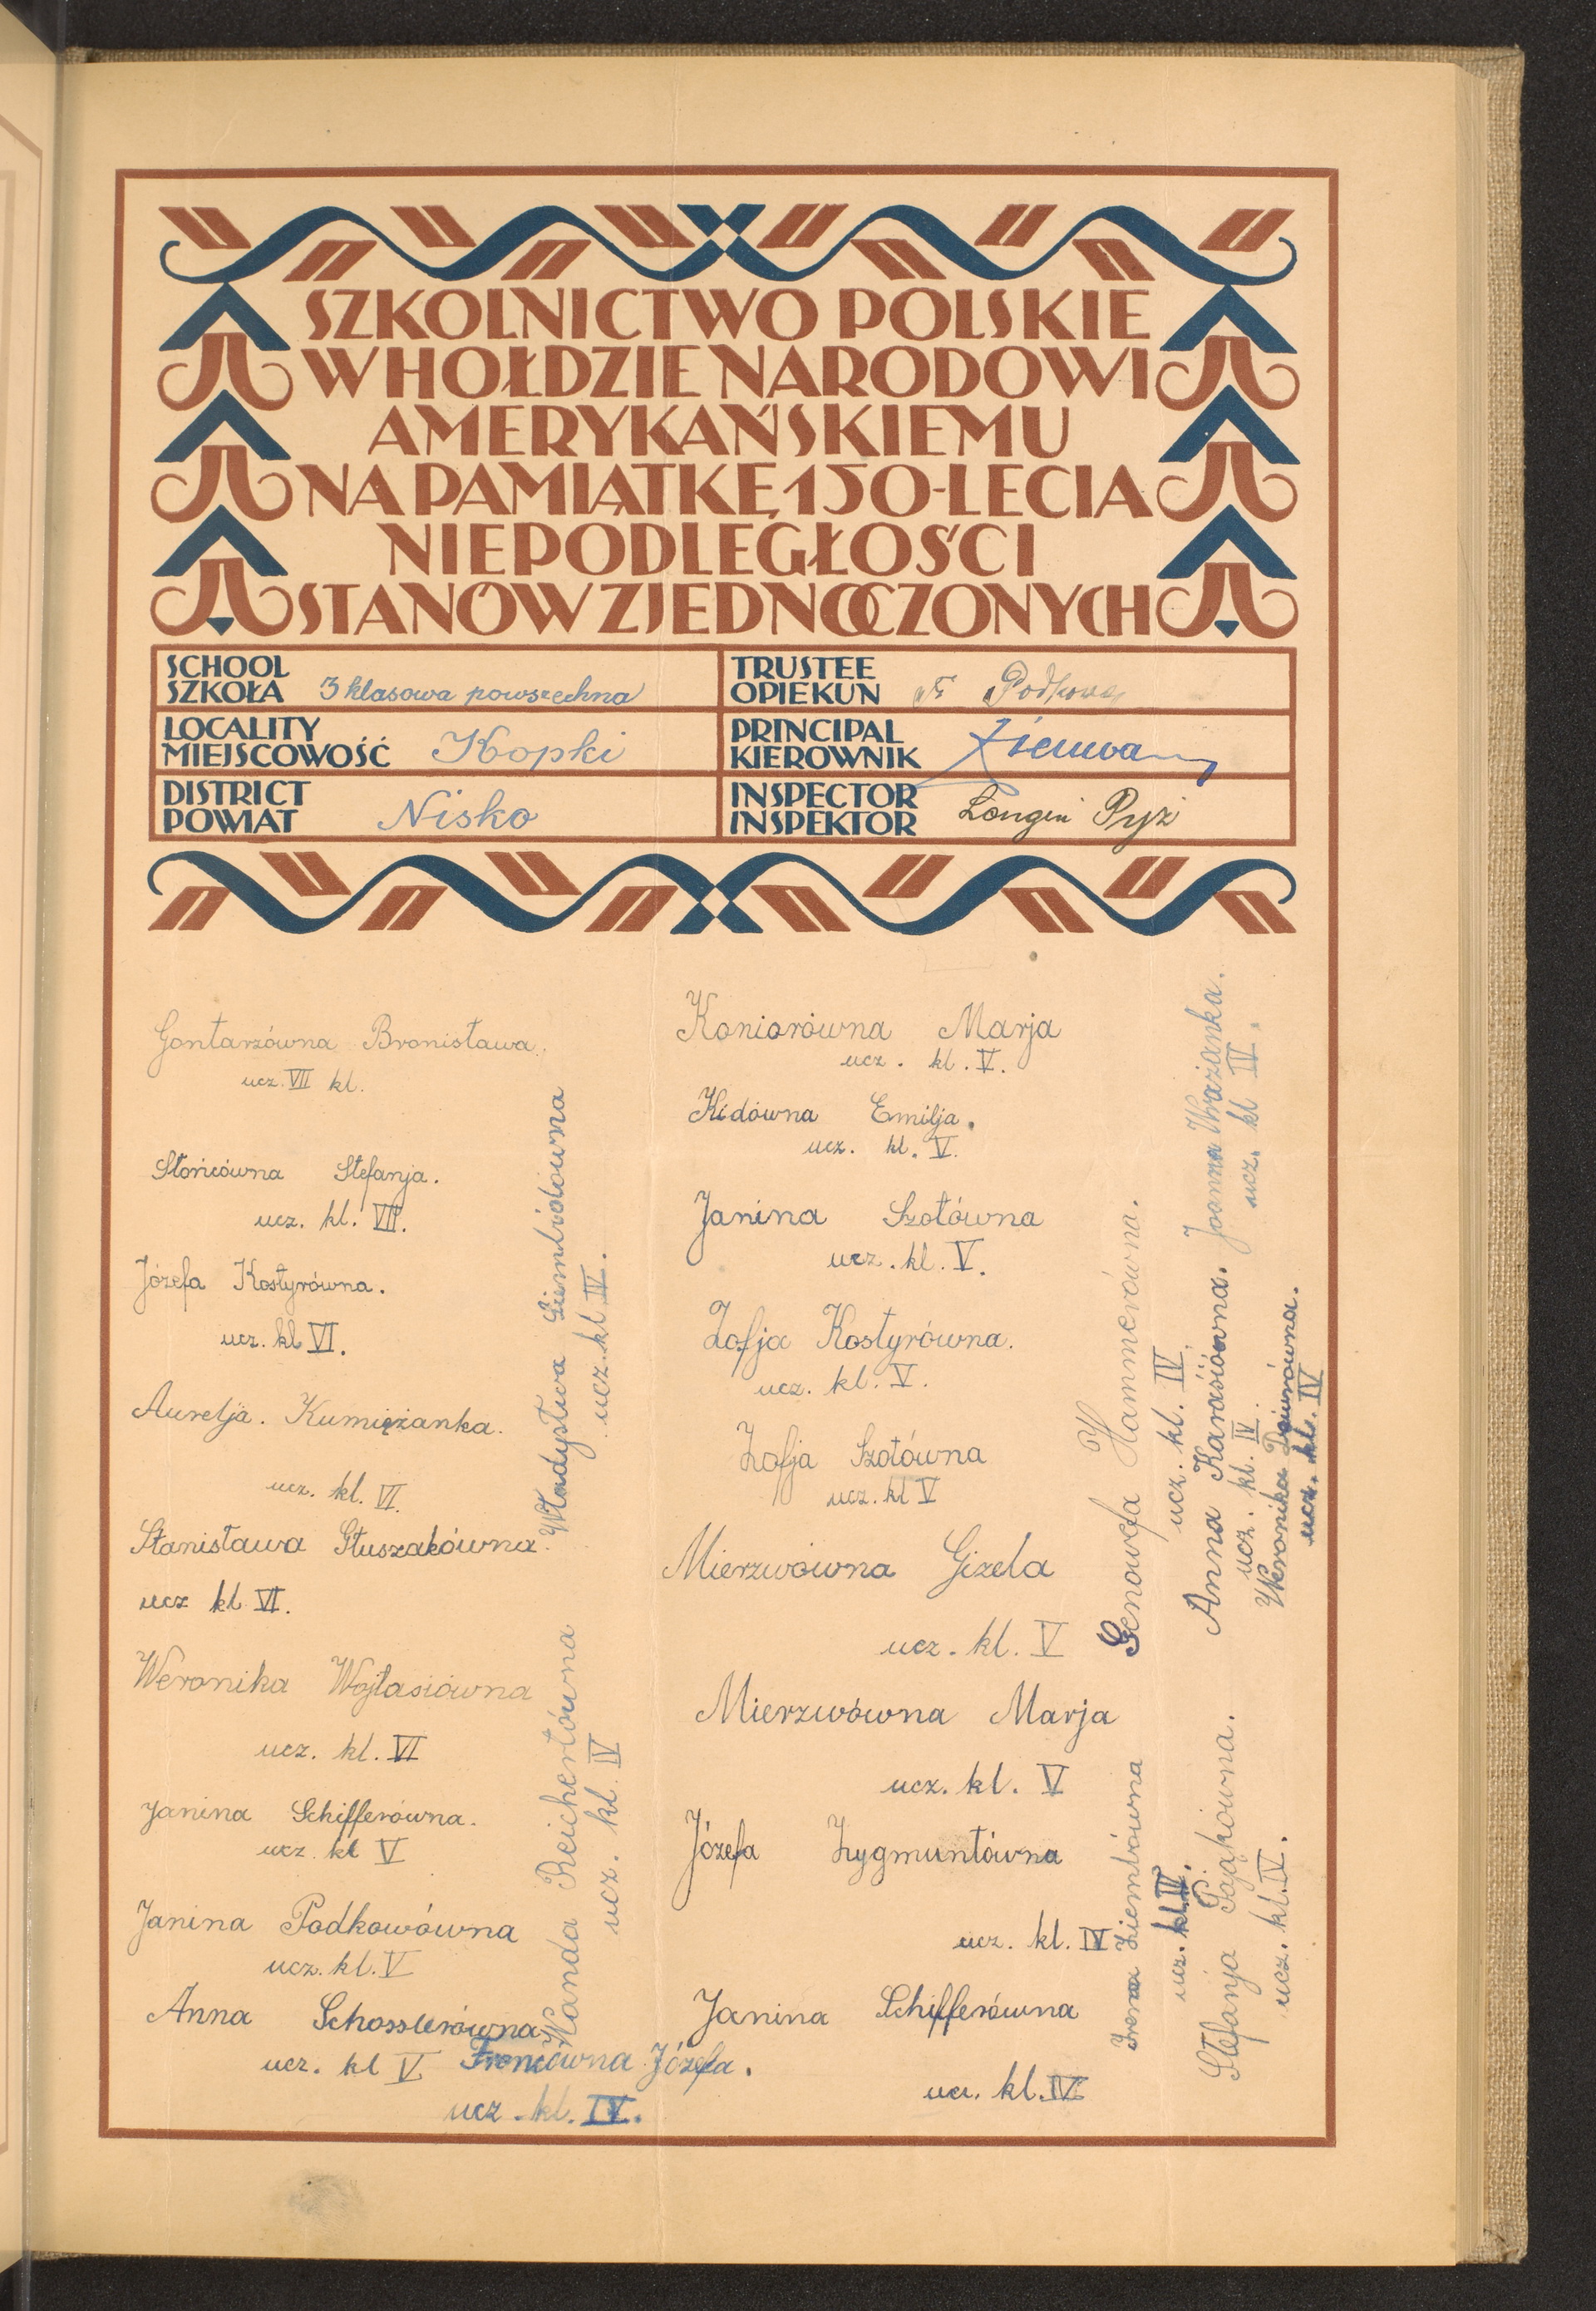 SZKOLNICTWO POLSKIE
W HOŁDZIE NARODOWI
AMERYKAŃSKIEMU
NA PAMIĄTKĘ 150-LECIA
NIEPODLEGŁOŚCI
STANÓW ZJEDNOCZONYCH
SCHOOL
SZKOŁA 3 klasowa powszechna
TRUSTEE
OPIEKUN Podkowa
LOCALITY
MIEJSCOWOŚĆ Kopki
PRINCIPAL
KIEROWNIK
DISTRICT
POWIAT Nisko
INSPECTOR
INSPEKTOR Longin Pyż
Gontarzówna Bronisława.
ucz. VII kl.
Słońcówna Stefanja.
ucz. kl. VII.
Józefa Kostyrówna.
ucz. kl VI.
Aurelja. Kumiężanka.
ucz. kl. VI.
Stanisława Głuszakówna.
ucz kl VI.
Weronika Wojtasiówna
ucz. kl. VI
Janina Schifferówna.
ucz. kl V
Janina Podkowówna
ucz. kl. V
Anna Schosslerówna
ucz. kl V
Froncówna Józefa.
ucz. kl. IV.
Władysława Ziembidówna
ucz. kl IV.
Wanda Reichertówna
ucz. kl. IV
Koniorówna Marja
ucz. kl. V.
Kidówna Emilja.
ucz. kl. V.
Janina Szotówna
ucz. kl. V.
Zofja Kostyrówna.
ucz. kl. V.
Zofja Szotówna
ucz. kl V
Mierzwówna Gizela
ucz. kl. V
Mierzwówna Marja
ucz. kl. V
Józefa Zygmuntówna
ucz. kl. IV
Janina Schifferówna
ucz. kl. IV
Genowefa Hammerówna.
ucz. kl. IV.
Irena Ziembówna
ucz. kl. IV.
Joanna Wrażanka.
ucz. kl IV.
Anna Karasiówna.
ucz. kl. IV.
Weronika
ucz. kl. IV
Stefanja Pająkówna.
ucz. kl. IV.